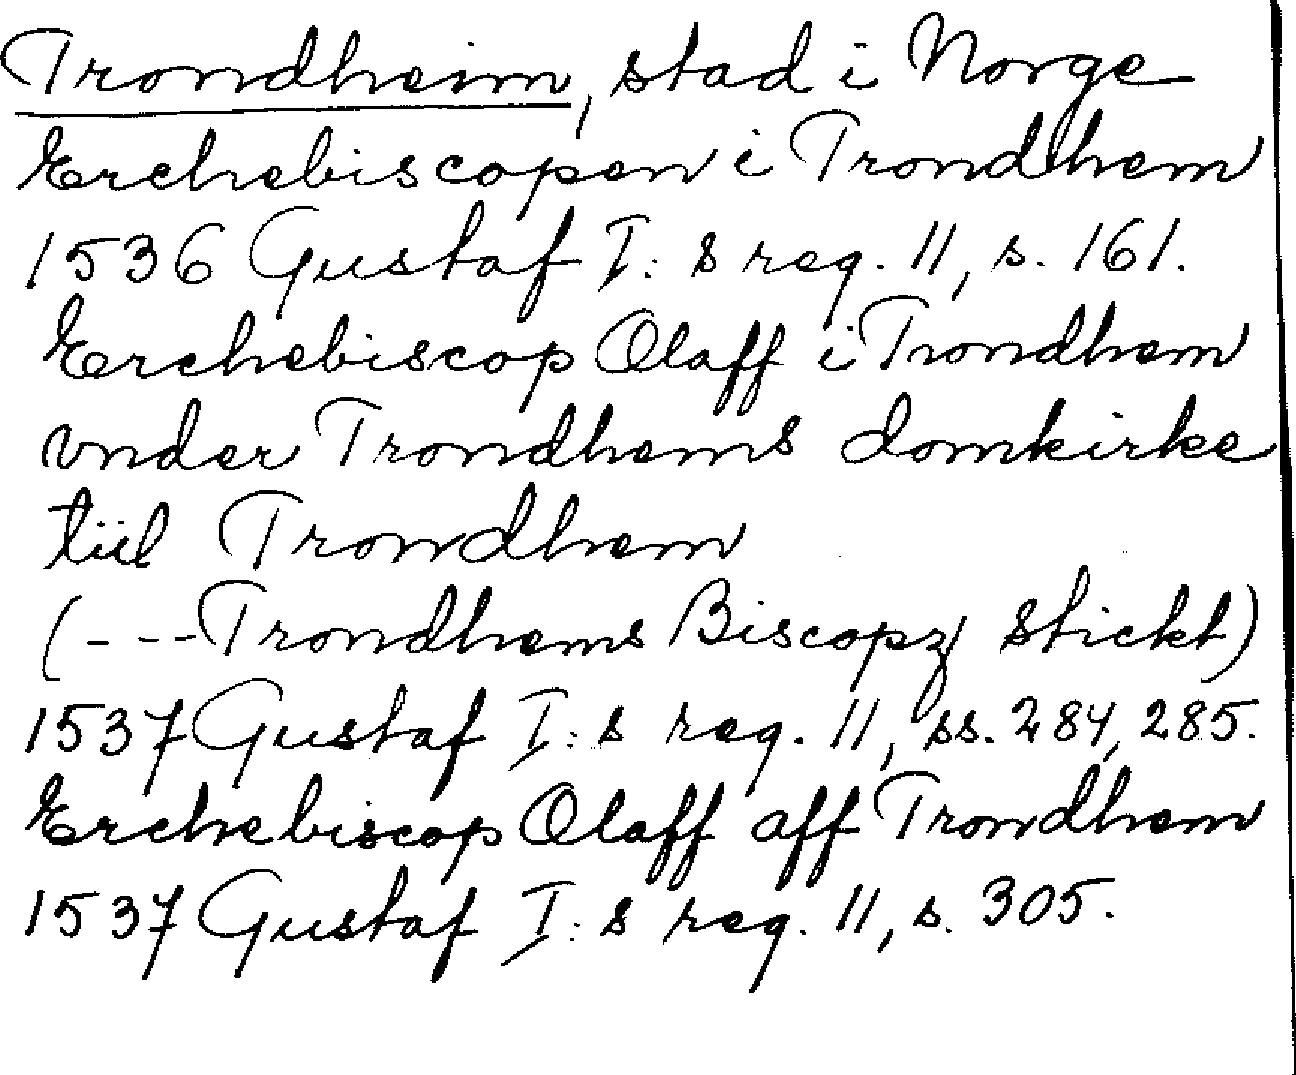 Trondheim, stad i Norge
Erchebiscopen i Trondhem
1536 Gustaf I:s reg. 11, s. 161.
Erchebiscop Olaff i Trondhem
vnder Trondhems domkirke
tiil Trondhem
(---Trondhems Biscopz stickt)
1537 Gustaf I:s reg. 11, ss. 284, 285.
Erchebiscop Olaff aff Trondhem
1537 Gustaf I:s reg. 11, s. 305.